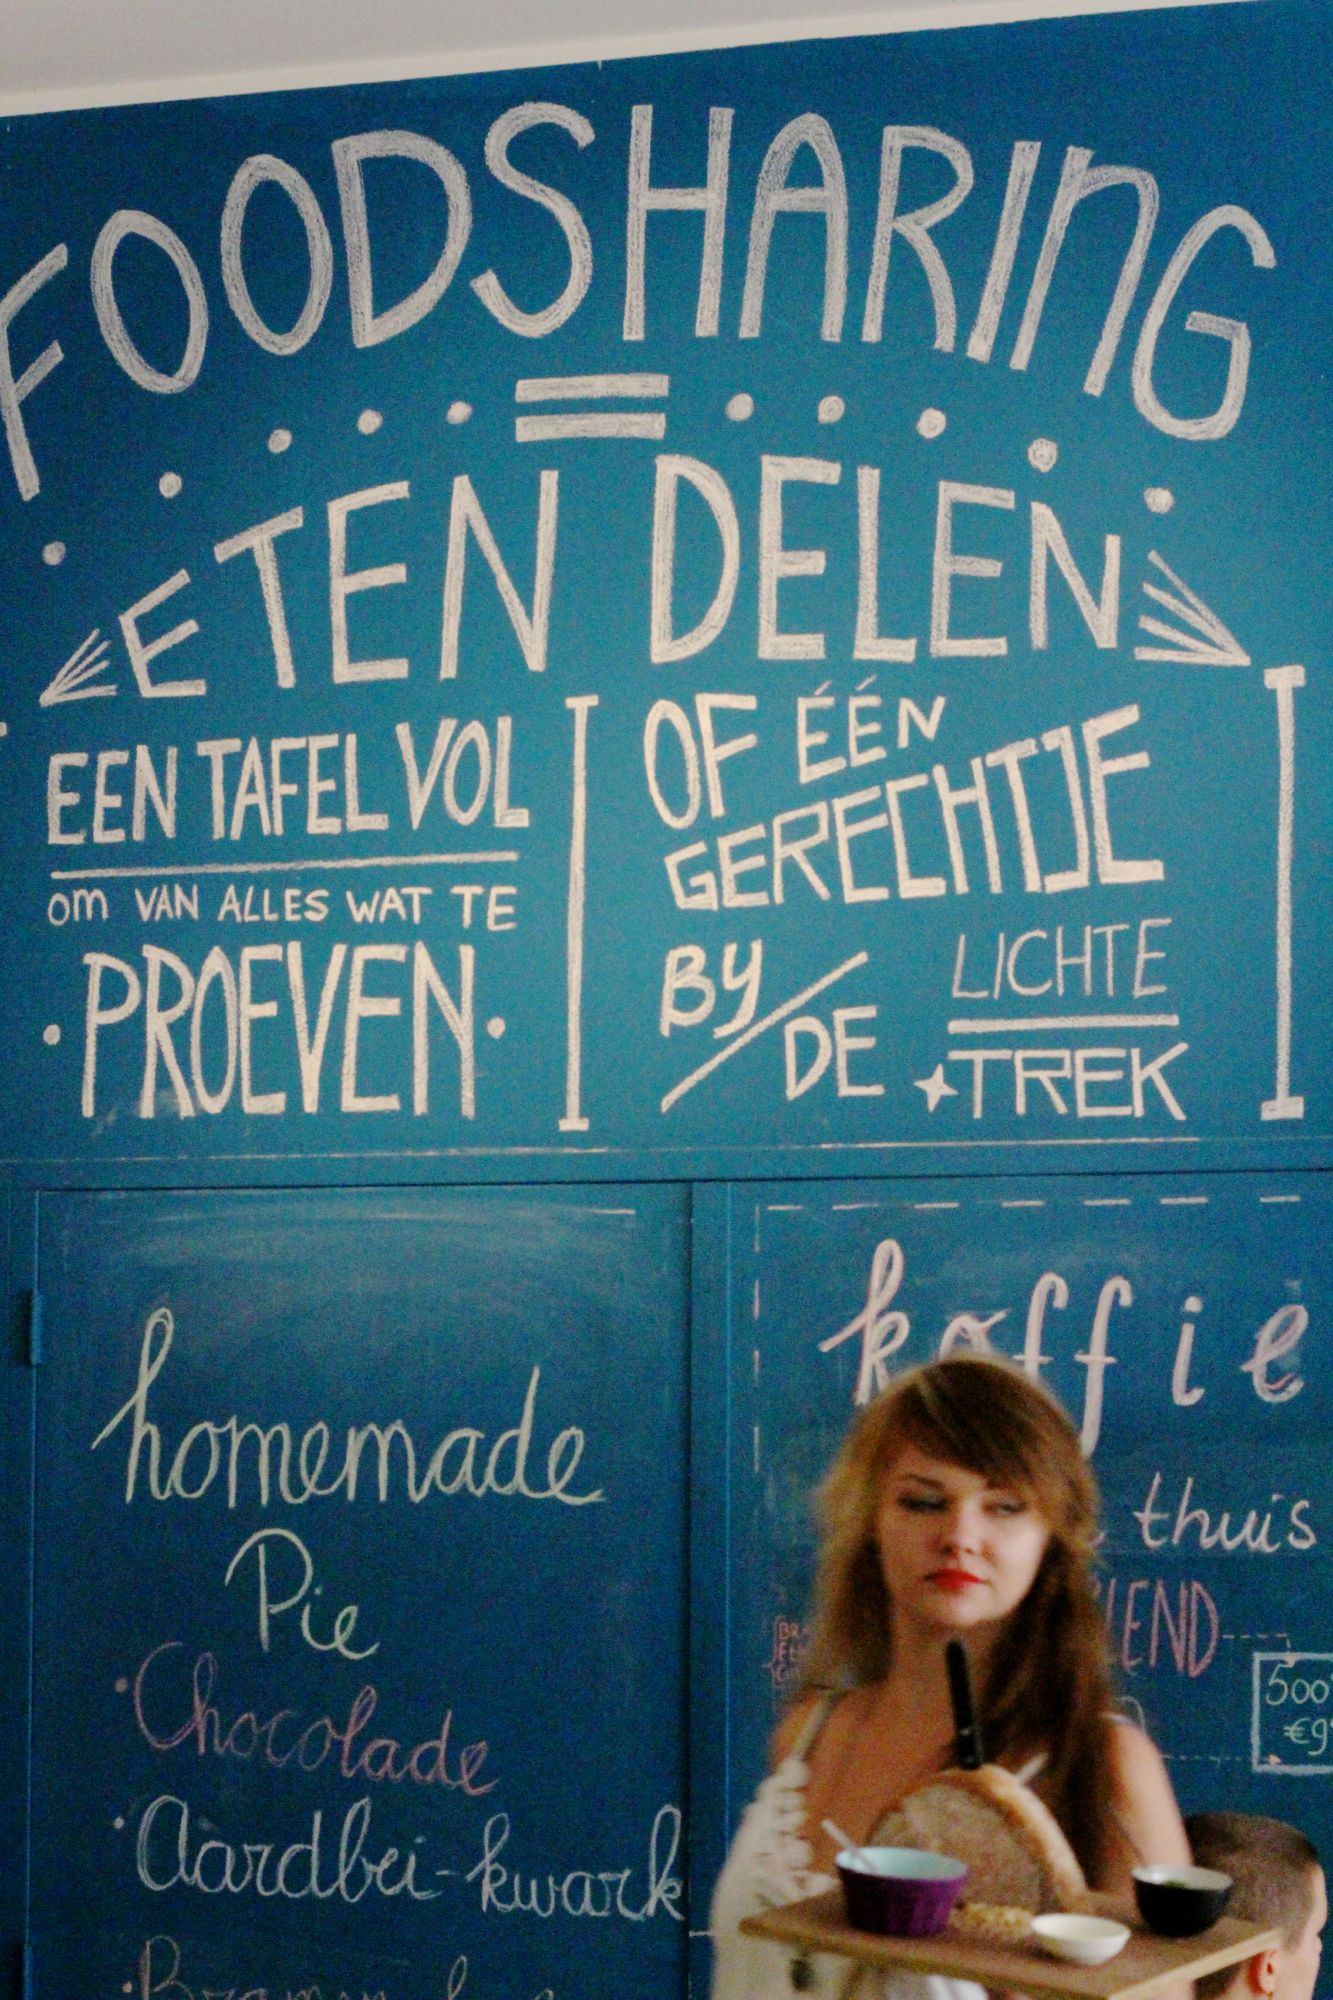 FOODSHARING
=
ETEN DELEN
EEN TAFEL VOL
om VAN ALLES WAT TE
PROEVEN
OF ÉÉN
GERECHTJE
BY/DE
LICHTE
TREK
homemade
Pie
Chocolade
Aardbei-kwark
koffie
thuis
BLEND
500